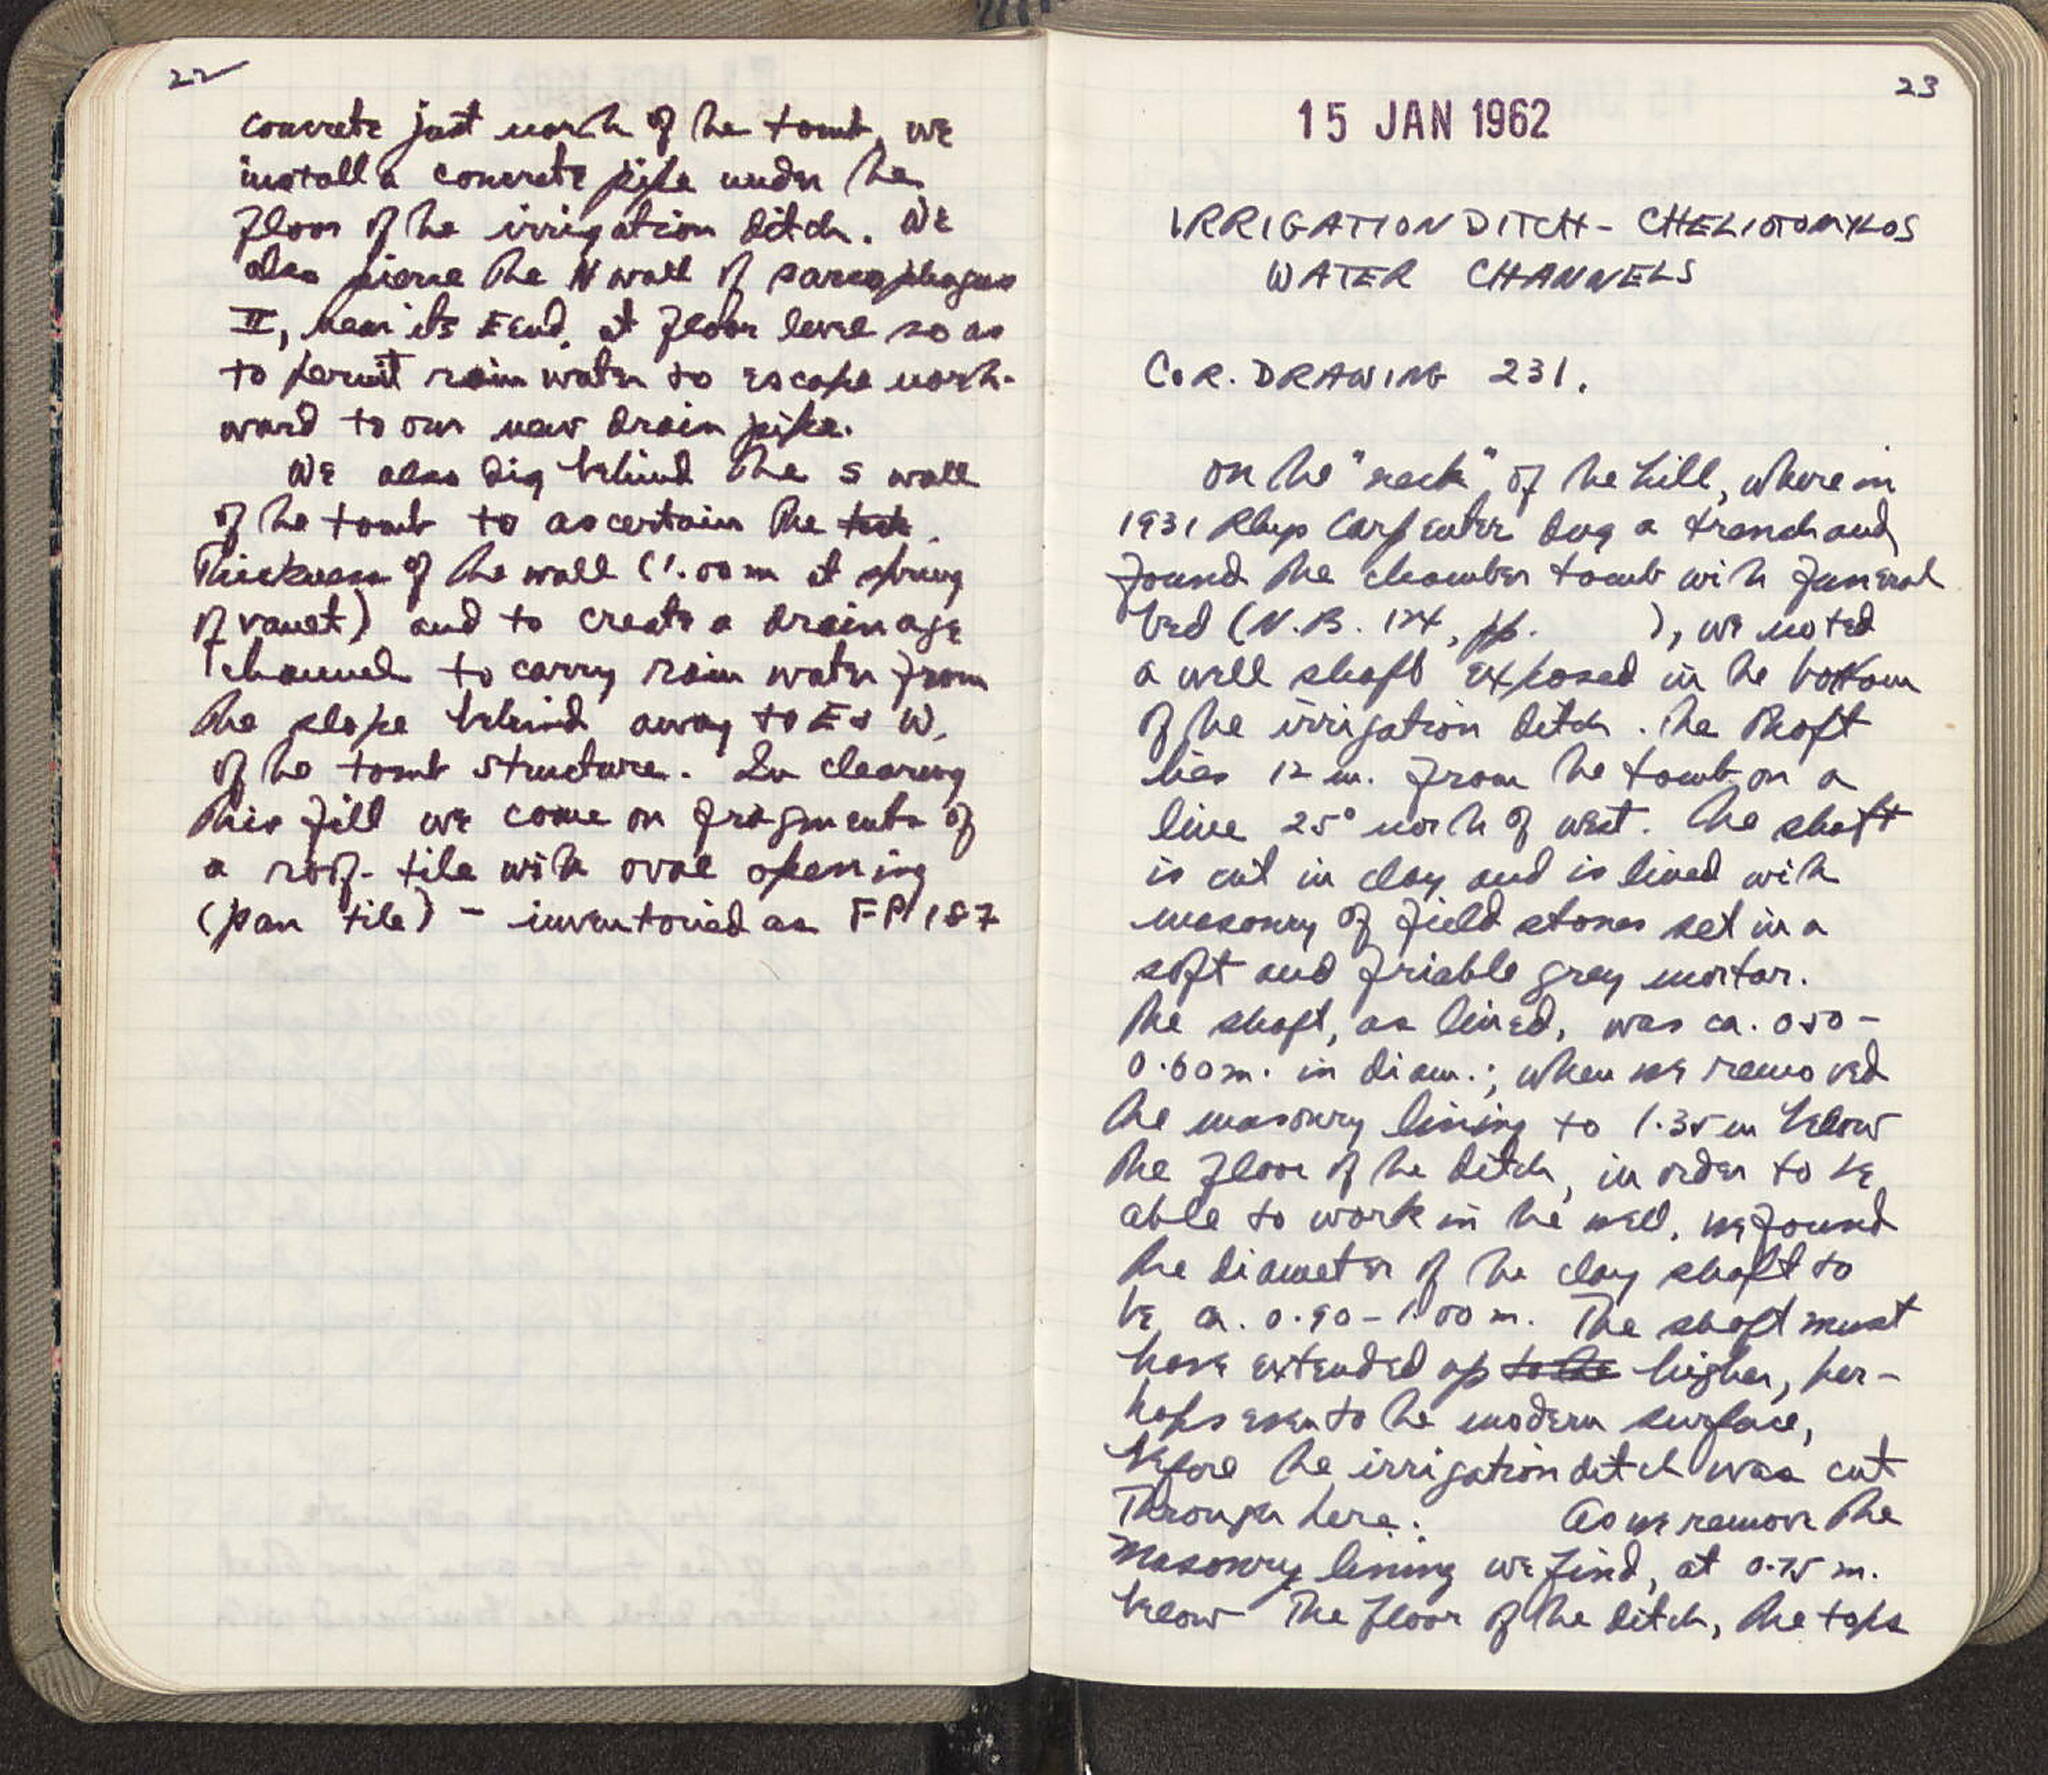 22
concrete just north of the tomb, we
install a concrete pipe under the
floor of the irrigation ditch. We
also pierce the N wall of sarcophagus
II, near its E end, at floor level so as
to permit rain water to escape north-
ward to our new drain pipe.
We also dig behind the S wall
of the tomb to ascertain the
thickness of the wall (1.00 m at spring
of vault) and to create a drainage
channel to carry rain water from
the slope behind away to E & W.
of the tomb structure. In clearing
this fill we come on fragments of
a roof-tile with oval opening
(pan tile) - inventoried as FP 187
23
15 JAN 1962
IRRIGATION DITCH - CHELIOTOMYLOS
WATER CHANNELS
COR. DRAWING 231.
On the "neck" of the hill, where in
1931 Rhys Carpenter dug a trench and
found the chamber tomb with funeral
bed (N.B. 124, pp. ), we noted
a well shaft exposed in the bottom
of the irrigation ditch. The shaft
lies 12 m. from the tomb on a
line 25° north of west. The shaft
is cut in clay and is lined with
masonry of field stones set in a
soft and friable grey mortar.
The shaft, as lined, was ca. 0.50-
0.60 m. in diam.; when we removed
the masonry lining to 1.35 m below
the floor of the ditch, in order to be
able to work in the well, we found
the diameter of the clay shaft to
be ca. 0.90-1.00 m. The shaft must
have extended up to the higher, per-
haps even to the modern surface,
before the irrigation ditch was cut
through here. As we remove the
masonry lining we find, at 0.75 m.
below the floor of the ditch, the tops